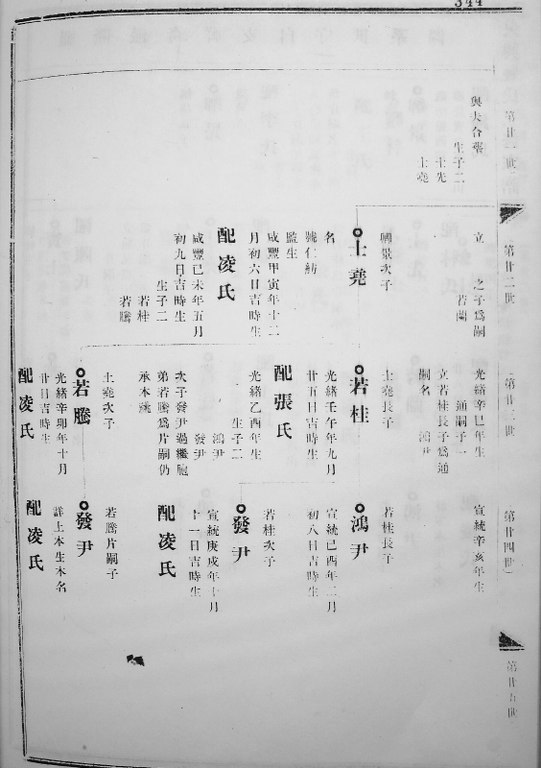 344
第廿一世
與夫合葬
生子二
士先
士堯
第廿二世
立
之子爲嗣
若蘭
士堯
興景次子
名
號仁紡
監生
咸豐甲寅年十二
月初六日吉時生
配凌氏
咸豐己未年五月
初九日吉時生
生子二
若桂
若騰
第廿三世
光緒辛巳年生
通嗣子一
立若桂長子爲通
嗣名
鴻尹
若桂
士堯長子
光緒壬午年九月
廿五日吉時生
配張氏
光緒乙酉年生
生子二
鴻尹
發尹
次子發尹過繼胞
弟若騰爲片嗣仍
承本祧
若騰
士堯次子
光緒辛卯年十月
廿日吉時生
配凌氏
第廿四世
宣統辛亥年生
鴻尹
若桂長子
宣統己酉年二月
初八日吉時生
發尹
若桂次子
宣統庚戌年十月
十一日吉時生
配凌氏
發尹
若騰片嗣子
詳上本生本名
配凌氏
第廿五世